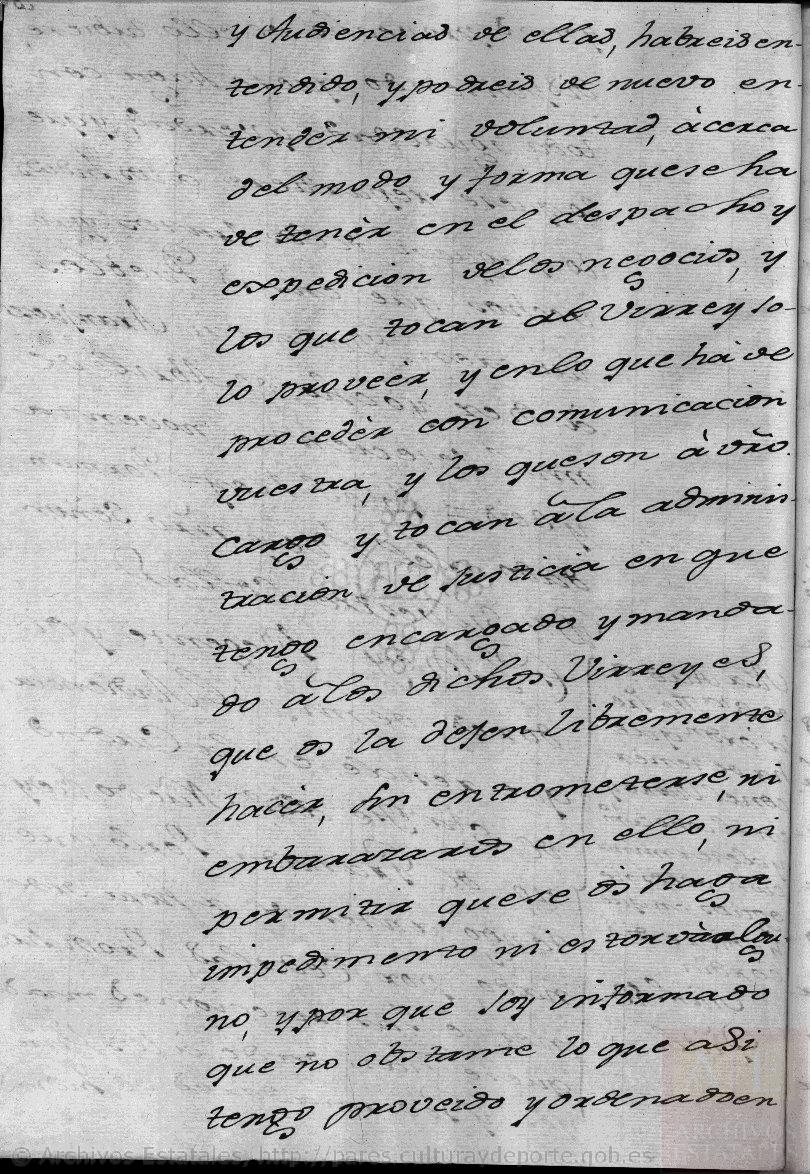 y Audiencias de ellas, habreis en-
tendido, y podreis de nuevo en-
tendèr mi voluntad, àcerca
del modo y forma que se ha
de tenèr en el despacho y
expedicion de los negocios, y
los que tocan al Virrey so-
lo proveèr, y en lo que hà de
procedèr con comunicacion
vuestra, y los que son à vr̃o
cargo y tocan à la adminis-
tracion de Justicia en que
tengo encargado y manda-
do à los dichos Virreyes,
que os la dejen libremente
hacèr, sin entrometerse, ni
embarazaros en ello, ni
permitir que se òs haga
impedimento ni estorvo àlgu-
no, y por que soy informado
que no obstante lo que asi
tengo proveido y ordenado en
© Archivos Estatales, http://pares.culturaydeporte.gob.es